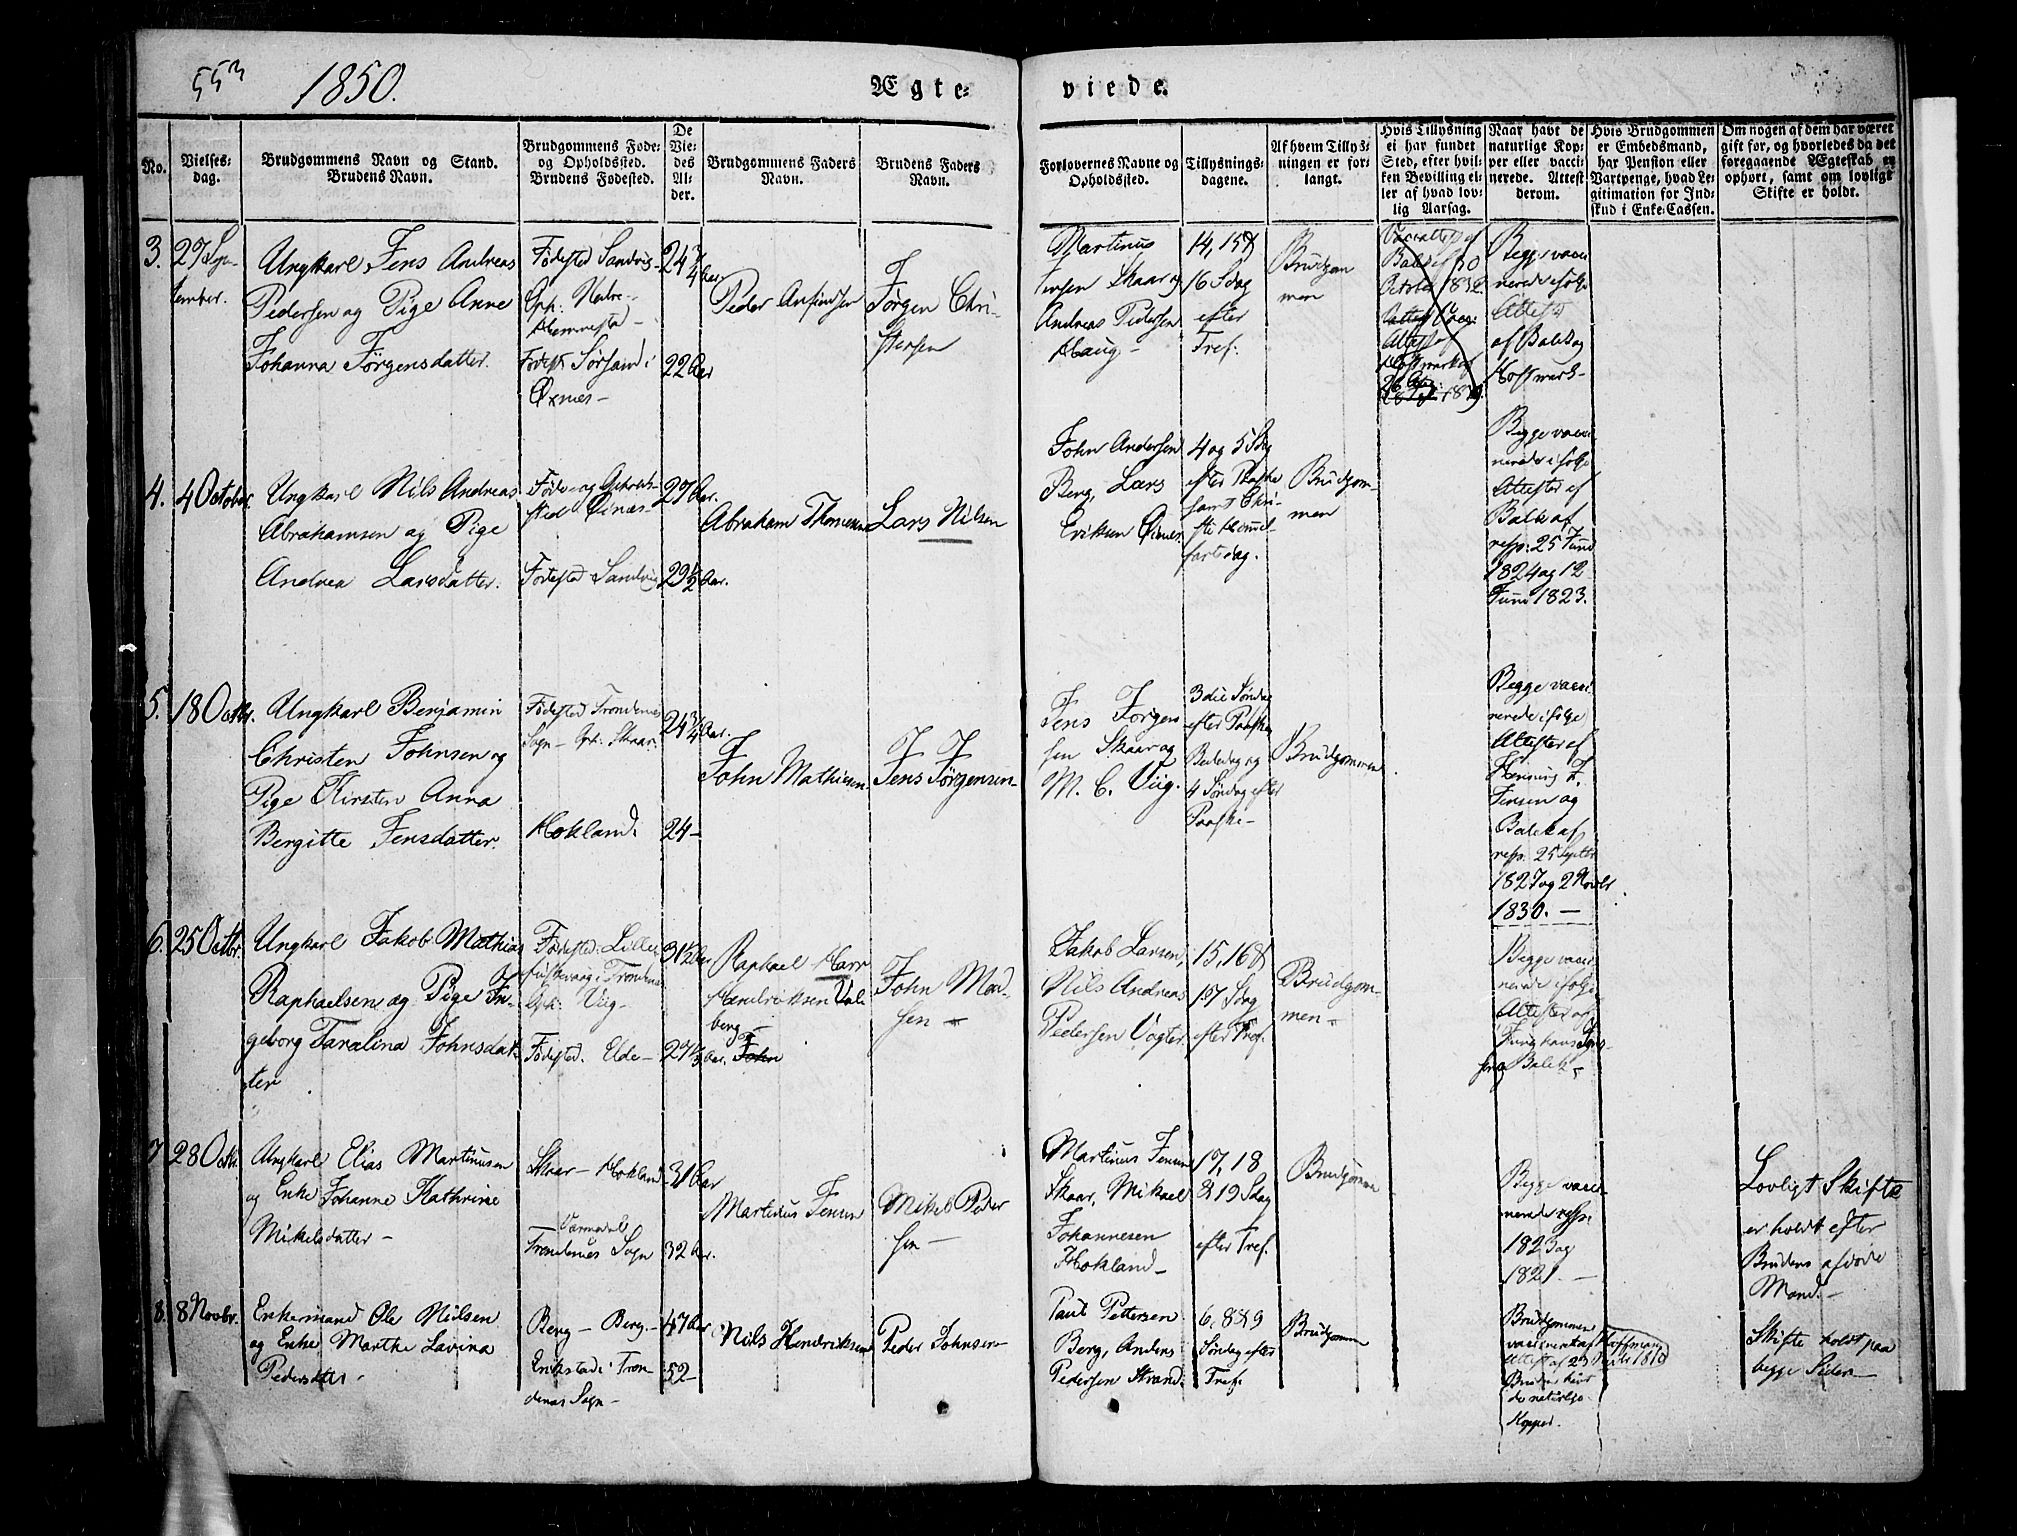 553 1850. Ægte= viede.
No.
Vielses=
dag.
Brudgommens Navn og Stand.
Brudens Navn.
Brudgommens Føde=
og Opholdssted.
Brudens Fødested.
De
Vie=
des
Al=
der.
Brudgommens Faders
Navn.
Brudens Faders
Navn.
Forlovernes Navne og
Opholdssted.
Tillysnings=
dagene.
Af hvem Tillys=
ningen er for=
langt.
Hvis Tillysning
ei har fundet
Sted, efter hvil=
ken Bevilling el=
ler af hvad lov=
lig Aarsag.
Naar havt de
naturlige Kop=
per eller vacci=
nerede. Attest
derom.
Hvis Brudgommen
er Embedsmand,
har Pension eller
Vartpenge, hvad Le=
gitimation for Ind=
skud i Enke=Cassen.
Om nogen af dem har været
gift før, og hvorledes da det
foregaaende Ægteskab er
ophørt, samt om lovligt
Skifte er holdt.
3.
27 Sep-
tember.
Ungkarl Jens Andreas
Pedersen og Pige Anne
Johanna Jørgensdatter.
Fødested Sandvig-
Oph: Nedre-
Hemmestad-
Fødest: Sørsand i
Øxnes-
24 3/4 Aar
22 Aar
Peder Anfindsen
Jørgen Chri-
stensen
Martinus
Jensen Skaar og
Andreas Pedersen
Haug-
14, 15 &
16 Sdag
efter
Tref:
Brudgom
men
October 1832
Begge vacci
nerede ifølge
Attester
af Balck og
Hoffmark-
4.
4 October.
Ungkarl Nils Andreas
Abrahamsen og Pige
Andrea Larsdatter.
sted Øinæs-
Fødested Sandvig
27 Aar.
29 1/2 Aar.
Abraham Thomesen
Lars Nilsen
John Andersen
Berg, Lars
Eriksen Øines.
4 og 5 Sdag
efter Paaske
samt Chri-
sti Himmel-
fartsdag.
Brudgom-
men
Begge vacci
nerede ifølge
Attester af
Balck af
resp: 25 Juni
1824 og 12
Juni 1823.
5.
18 Octbr.
Ungkarl Benjamin
Christen Johnsen og
Pige Kirsten Anna
Bergitte Jensdatter.
Fødested Trondenes
Sogn- Oph: Skaar.
Hokland.
24 3/4 Aar.
24-
John Mathisen.
Jens Jørgensen-
Jens Jørgen
sen Skaar og
M. C. Viig.
3die Søndag
efter Paaske,
Bededag og
4 Søndag efter
Paaske-
Brudgommen
Begge vacci
nerede ifølge
Attester af
Henning J.
Jensen og
Balck af
resp. 25 Septbr
1827 og 2 Novbr
1830.-
6.
25 Octbr.
Ungkarl Jakob Mathias
Raphaelsen og Pige In-
geborg Taralina Johnsdat-
ter
Fødested: Lille
Oph: Viig-
Fødested. Elde-
31 1/2 Aar
Raphael
Hendriksen Val
berg-
John
John Mad-
sen-
Jakob Larsen,
Nils Andreas
Pedersen Vogter.
15, 16 &
17 Sdag
efter Tref.
Brudgom-
men-
Begge vacci
nerede ifølge
Attester af
Balck-
7
28 Octbr.
Ungkarl Elias Martinusen
og Enke Johanne Kathrine
Mikelsdatter-
Skaar- Hokland
Trondenæs Sogn
31 Aar
32 Aar.
Martinus Jensen
Mikel Peder
sen-
Martinus Jensen
Skaar, Mikael
Johannesen
Hokland-
17, 18
& 19 Sdag
efter Tref.
Brudgommen
Begge vacci-
nerede resp:
1823 og
1821.-
Lovligt Skifte
er holdt efter
Brudens afdøde
Mand.-
8.
8 Novbr.
Enkemand Ole Nilsen
og Enke Marthe Lavina
Pedersdatter
Berg- Berg.-
Erikstad i Tron
denæs Sogn-
47 Aar
52-
Nils Hendriksen
Peder Johnsen-
Paul Pettersen
Berg, Anders
Pedersen Strand.
6, 8 & 9
Søndag efter
Tref.
Brudgommen
Brudgommen
vaccineret af Hoffmann
Attest af 23 1810
Bruden havt
de naturlige
Kopper.
Skifte holdt paa
begge Sider-